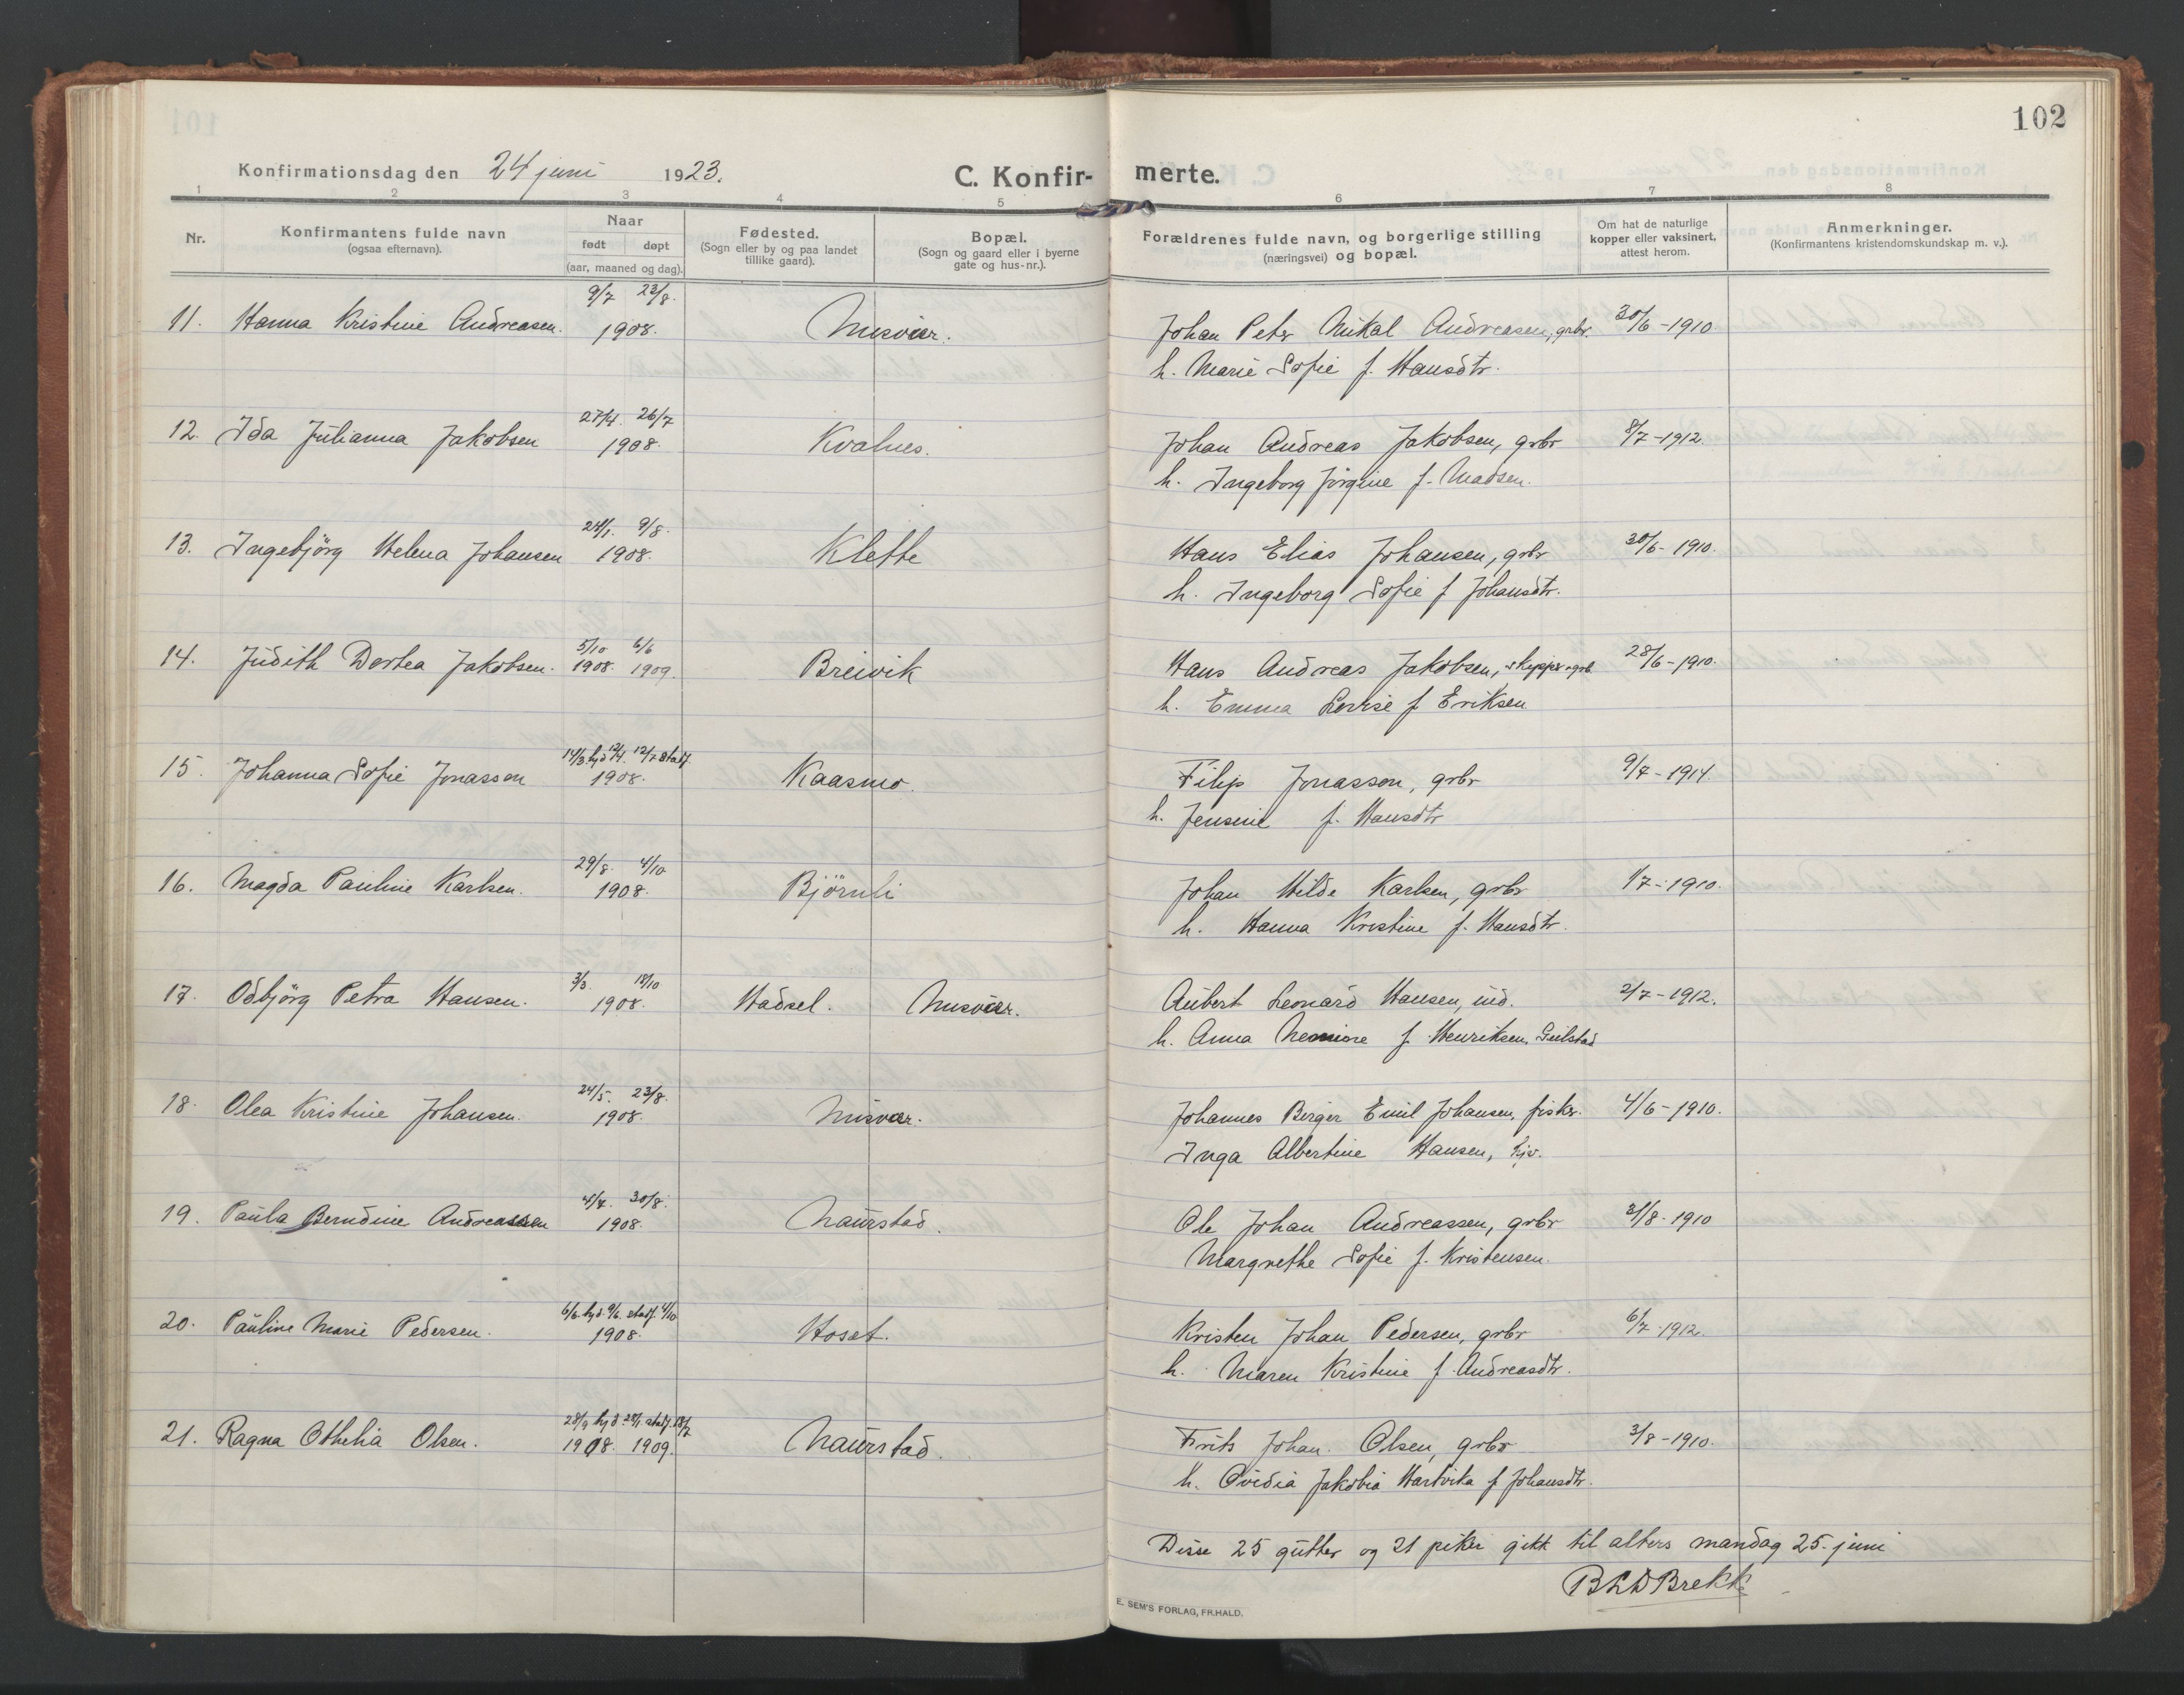 102
Konfirmationsdag den 24 juni 1923. C. Konfir- merte.
1 2 3 4 5 6 7 8
Nr. Konfirmantens fulde navn (ogsaa efternavn). Naar født døpt (aar, maaned og dag). Fødested. (Sogn eller by og paa landet tillike gaard). Bopæl. (Sogn og gaard eller i byerne gate og hus-nr.). Forældrenes fulde navn, og borgerlige stilling (næringsvei) og bopæl. Om hat de naturlige kopper eller vaksinert, attest herom. Anmerkninger. (Konfirmantens kristendomskundskap m. v.).
9/7 23/8.
11. Hanna Kristine Andreasen. 1908. Misvær. Johan Peter Mikal Andreasen, grbr. 30/6-1910
h. Marie Sofie f. Hansdtr.
27/4. 26/7
12. Ida Julianna Jakobsen 1908. Kvalnes. Johan Andreas Jakobsen, grbr 8/7-1912.
h. Ingeborg Jörgine f. Madsen.
24/1. 9/8.
13. Ingebjörg Helena Johansen 1908. Klette Hans Elias Johansen, grbr 30/6-1910.
h. Ingeborg Sofie f Johansdtr.
5/10 6/6
14. Judith Dortea Jakobsen. 1908. 1909. Breivik Hans Andreas Jakobsen, skipper, grb. 28/6-1910.
h. Emma Lovise f Eriksen
14/3. hjd 12/4. 12/7 stadf.
15. Johanna Sofie Jonasson 1908. Kaasmo. Filip Jonasson, grbr 9/7-1914.
h. Jensine f. Hansdtr
29/8. 4/10
16. Magda Pauline Karlsen. 1908. Björnli Johan Hilde Karlsen, grbr 1/7-1910.
h. Hanna Kristine f. Hansdtr.
3/3. 18/10
17. Odbjörg Petra Hansen. 1908. Hadsel. Misvær. Aubert Leonard Hansen, ind. 2/7-1912.
h. Anna f. Henriksen,
24/5. 23/8.
18. Olea Kristine Johansen. 1908. Misvær. Johannes Berger Emil Johansen, fisker. 4/6-1910.
Inga Albertine Hansen,
4/7. 30/8.
19. Paula Berndine Andreassen 1908. Naurstad. Ole Johan Andreassen, grbr 31/8-1910
Margrethe Sofie f. Kristensen.
6/6. hjd. 9/6. stadf. 4/10
20. Pauline Marie Pedersen. 1908. Hoset. Kristen Johan Pedersen, grbr 6/7-1912.
h. Maren Kristine f. Andreasdtr.
28/9 hjd. 28/1. stadf. 18/7
21. Ragna Othelia Olsen. 1908. 1909. Naurstad. Frits Johan Olsen, grbr 3/8-1910.
h. Ovidia Jakobia Hartvika f Johansdtr.
Disse 25 gutter og 21 piker gikk til alters mandag 25. juni
Brekke
E. SEM'S FORLAG, FR.HALD.